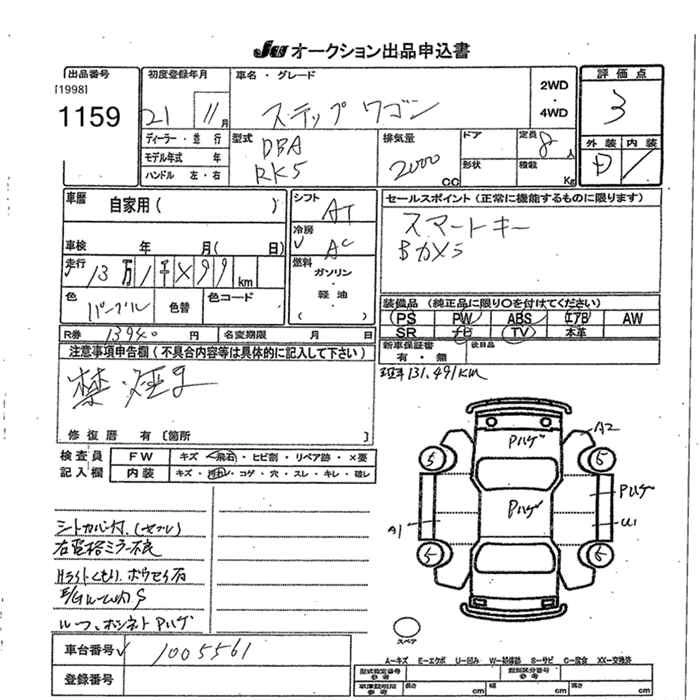 JU オークション出品申込書
出品番号
[1998]
1159
初度登録年月
21 11月
車名・グレード
ステップワゴン
2WD
・
4WD
評価点
3
外装 内装
D
ディーラー・並行
モデル年式 年
ハンドル 左・右
型式
DBA
RK5
排気量
2000
cc
ドア
形状
定員
8人
積載
Kg
車歴
自家用( )
車検 年 月( 日)
走行
13万1千×99km
色
パープル
色替
色コード
R券 13940 円 名変期限 月 日
シフト
AT
冷房
AC
燃料
ガソリン
・
軽油
( )
セールスポイント(正常に機能するものに限ります)
スマートキー
Bカメラ
装備品(純正品に限り○を付けてください)
PS PW ABS エアB AW
SR ナビ TV 本革
新車保証書
有・無
後日品
注意事項申告欄(不具合内容等は具体的に記入して下さい)
禁・煙
修復歴 有〔箇所 〕
131.491km
検査員
記入欄
FW キズ・飛石・ヒビ割・リペア跡・×要
内装 キズ・汚れ・コゲ・穴・スレ・キレ・破レ
右電格ミラー不良
ルーフ、ボンネットPハゲ
Pハゲ
A2
5
5
Pハゲ
Pハゲ
A1
U1
5
5
スペア
車台番号 1005561
登録番号
A－キズ E－エクボ U－凹み W－補修跡 S－サビ C－腐食 XX－交換済
型式指定番号
参考
類別区分番号
参考
車庫証明用
参考
長さ cm 幅 cm 高さ cm